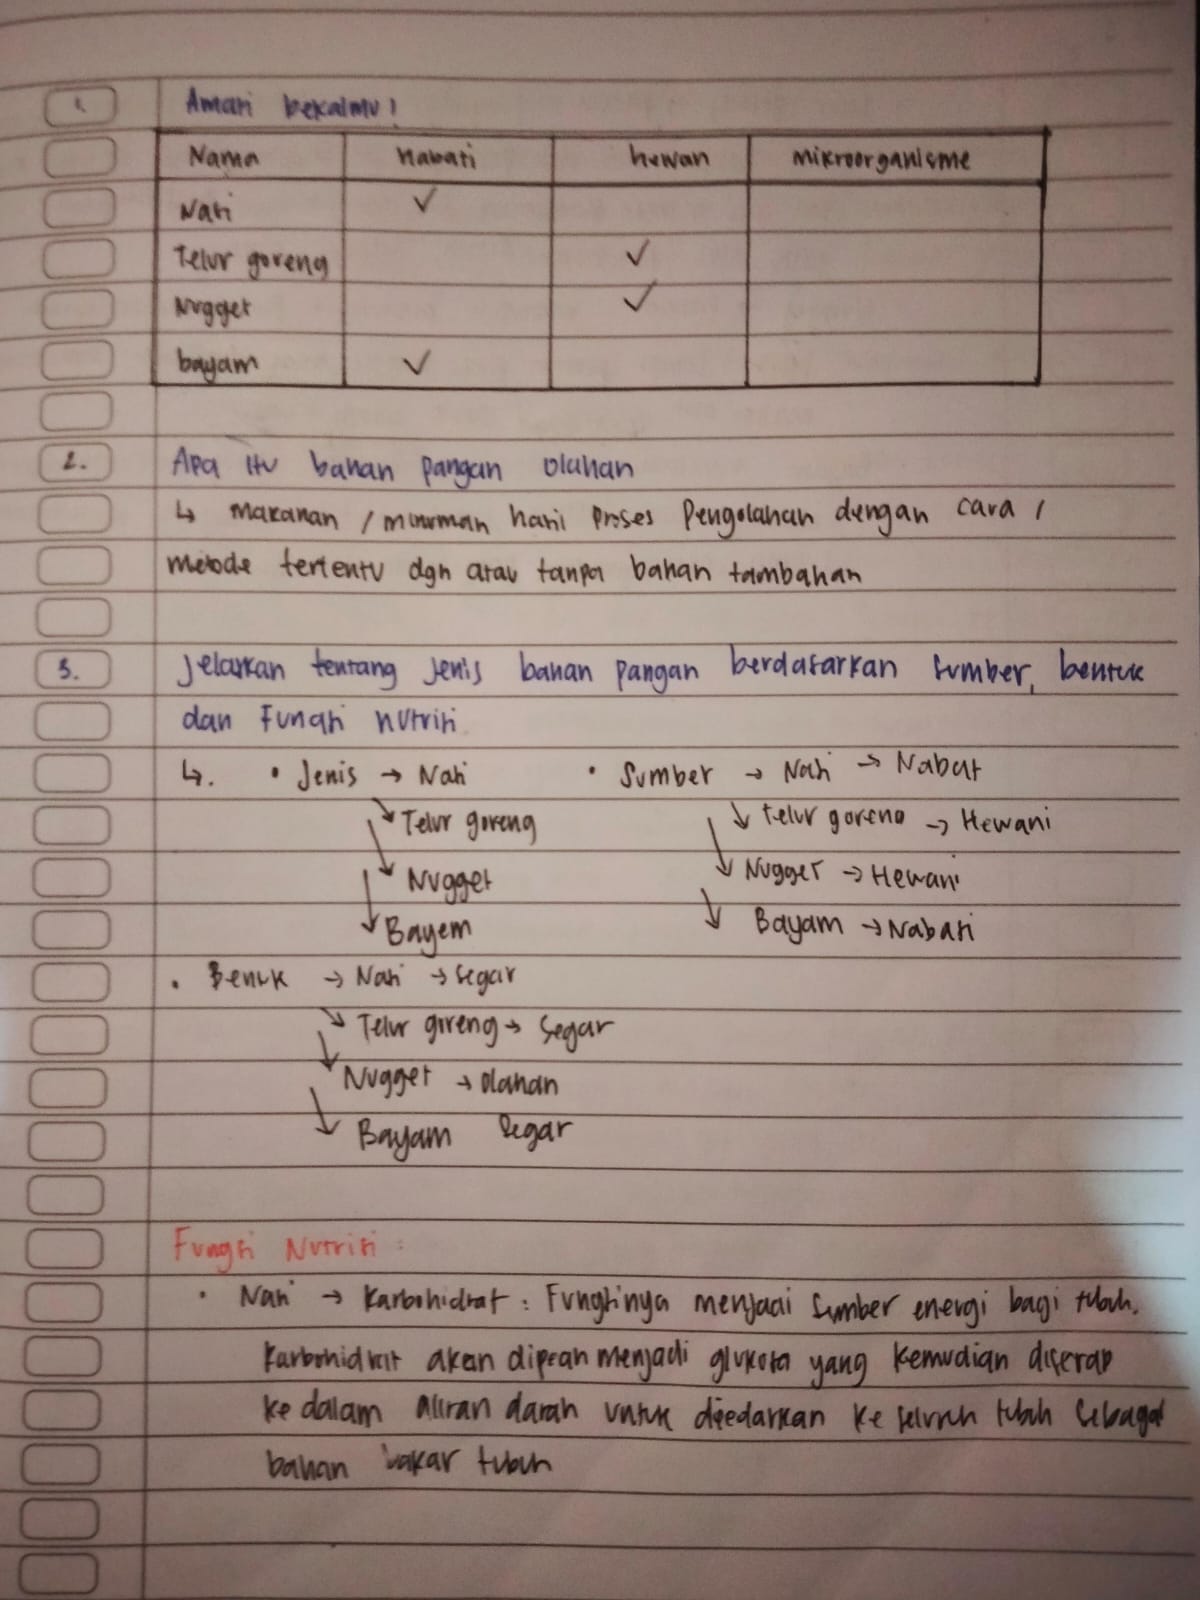 1. Amati bekalmu!
Nama nabati hewan mikroorganisme
Nasi ✓
Telur goreng ✓
Nugget ✓
bayam ✓
2. Apa itu bahan pangan olahan
↳ makanan / minuman hasil proses pengolahan dengan cara /
metode tertentu dgn atau tanpa bahan tambahan
3. Jelaskan tentang jenis bahan pangan berdasarkan sumber, bentuk
dan Fungsi nutrisi
↳. • Jenis → Nasi • Sumber → Nasi → Nabati
↘ Telur goreng ↓ telur goreng → Hewani
↘ Nugget ↓ Nugget → Hewani
↓ Bayem ↓ Bayam → Nabati
• Bentuk → Nasi → Segar
↘ Telur goreng → Segar
↓ Nugget → Olahan
↓ Bayam Segar
Fungsi Nutrisi :
• Nasi → Karbohidrat : Fungsinya menjadi sumber energi bagi tubuh.
Karbohidrat akan dipecah menjadi glukosa yang kemudian diserap
ke dalam aliran darah untuk diedarkan ke seluruh tubuh sebagai
bahan bakar tubuh